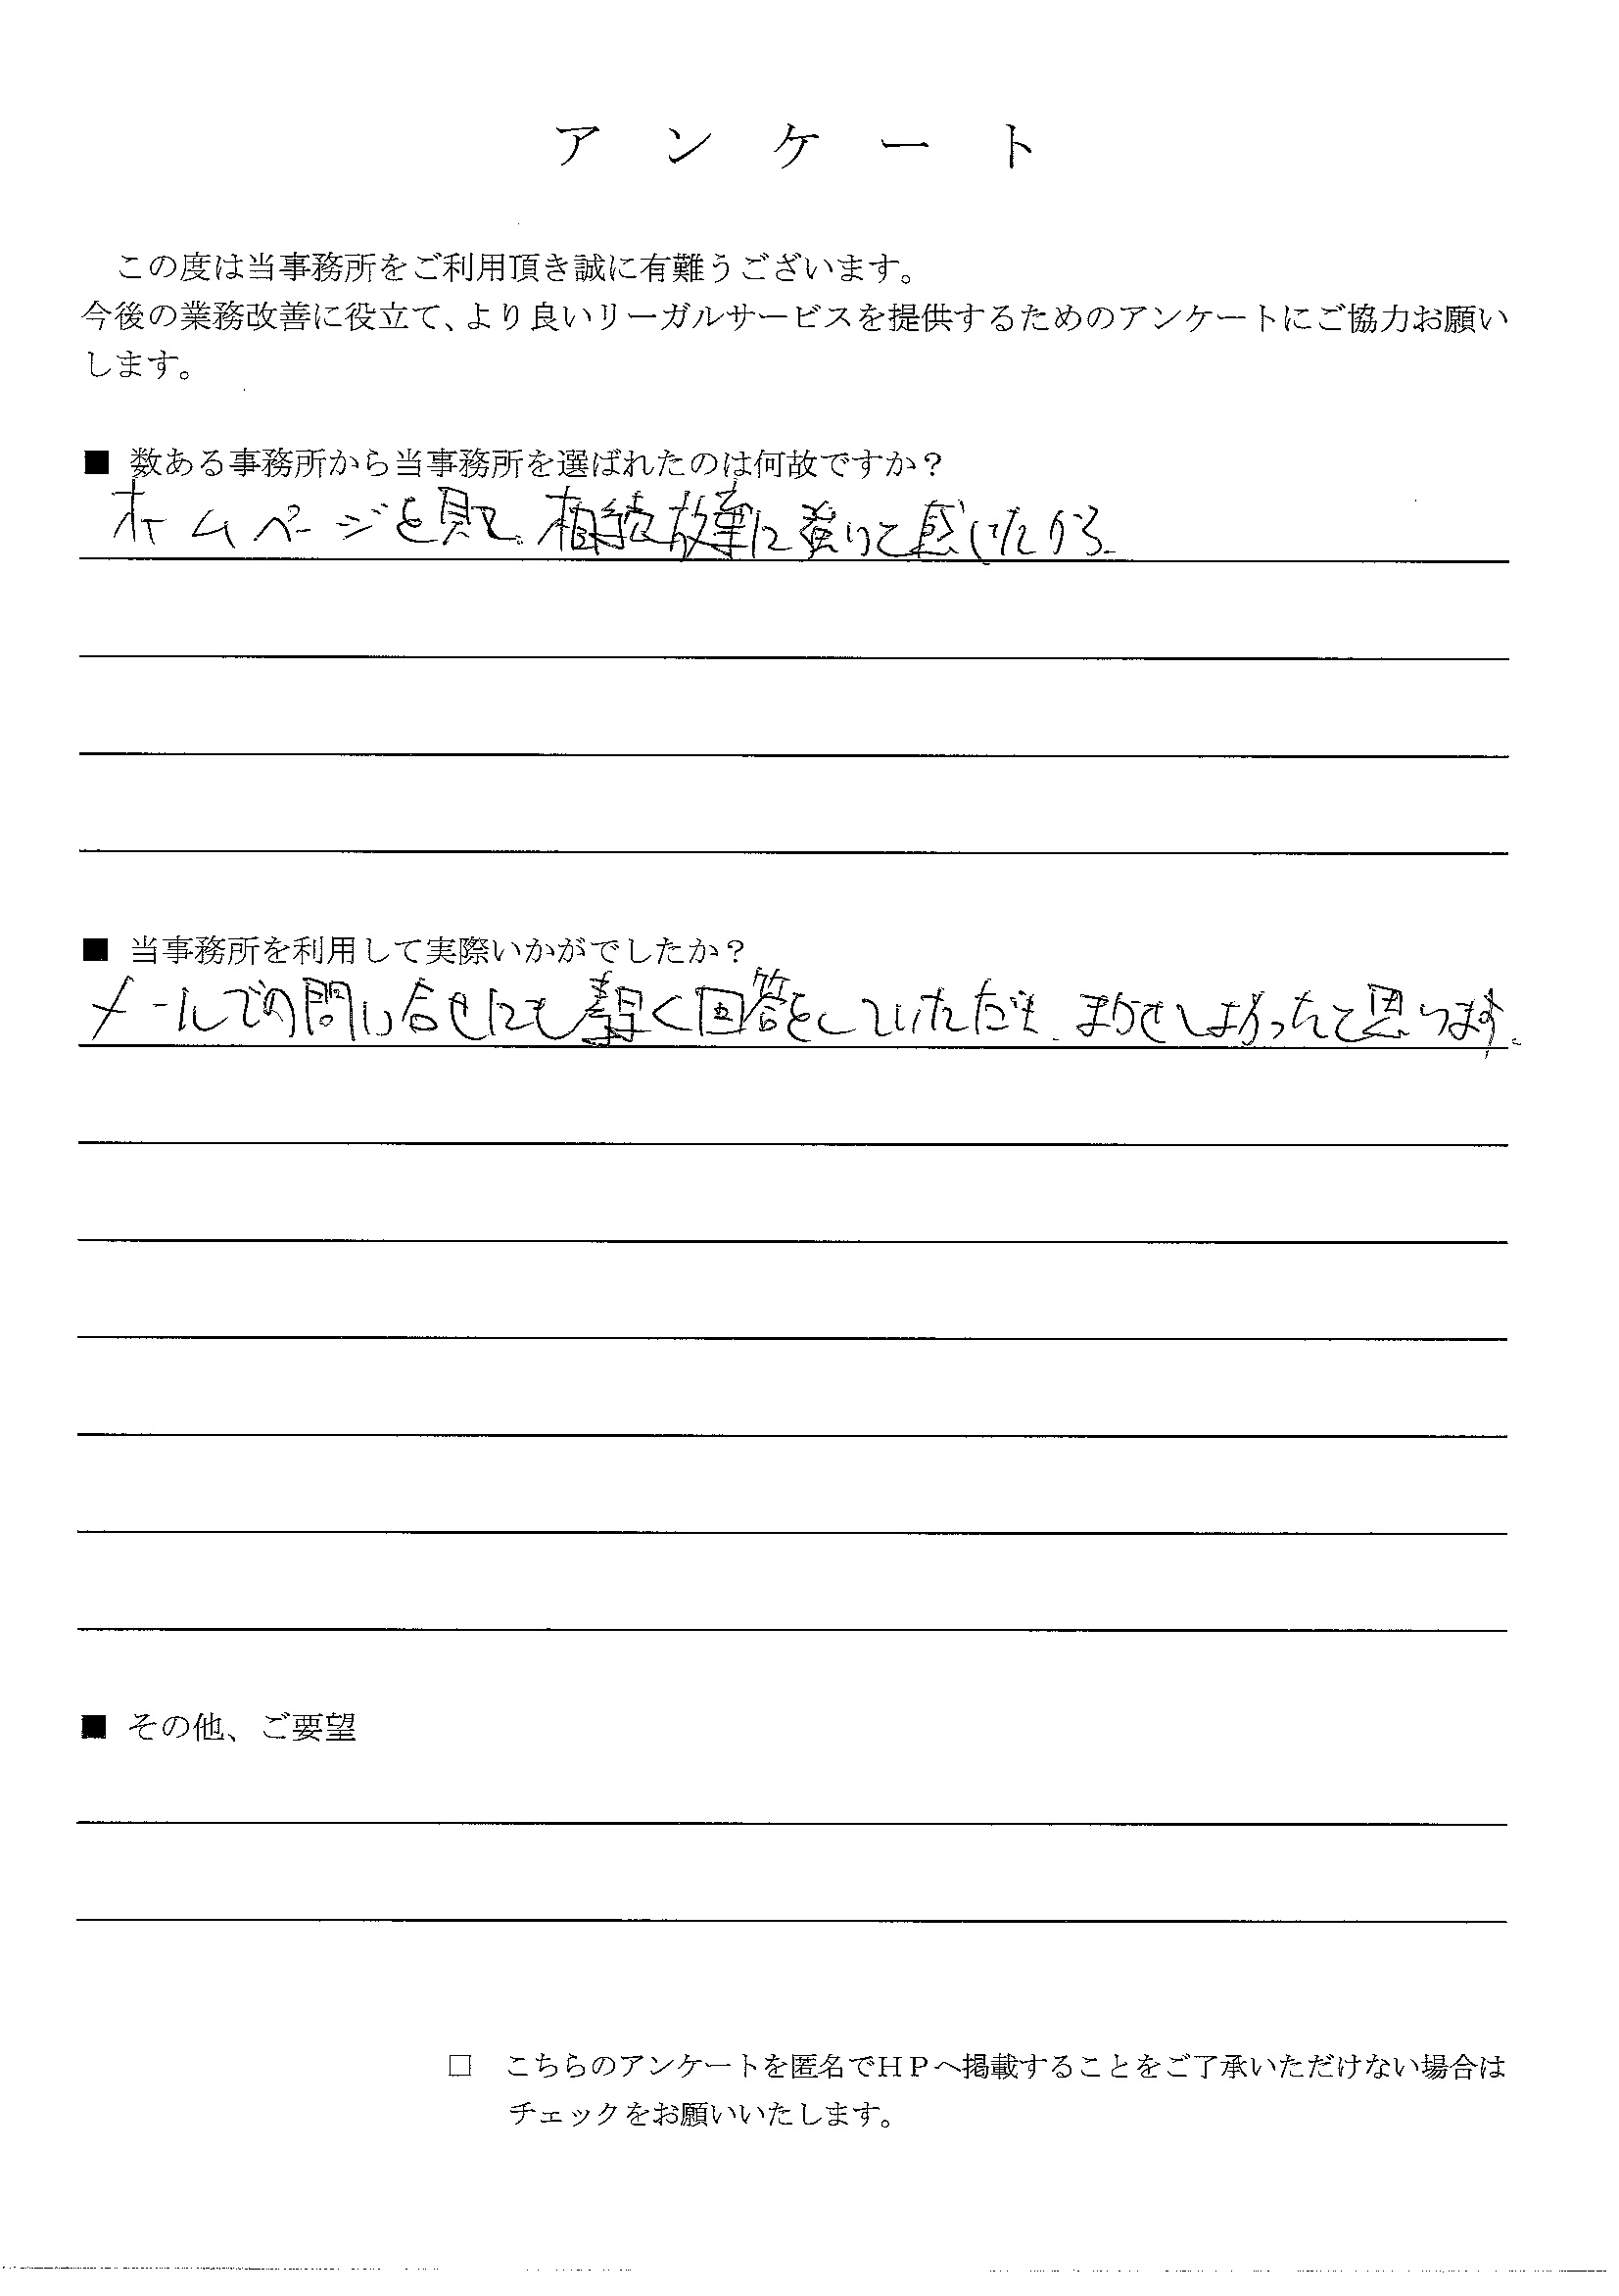 アンケート
この度は当事務所をご利用頂き誠に有難うございます。
今後の業務改善に役立て、より良いリーガルサービスを提供するためのアンケートにご協力お願い
します。
■ 数ある事務所から当事務所を選ばれたのは何故ですか？
ホームページを見て。相続放棄に強いと感じたから。
■ 当事務所を利用して実際いかがでしたか？
メールでの問い合せにも素早く回答をしていただき、まかせてよかったと思います。
■ その他、ご要望
□ こちらのアンケートを匿名でＨＰへ掲載することをご了承いただけない場合は
チェックをお願いいたします。